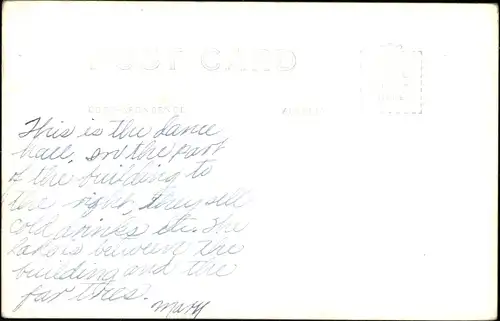 POST CARD
CORRESPONDENCE
ADDRESS
This is the dance
hall, on the part
of the building to
the right, they sell
cold drinks etc. The
lake is between the
building and the
far trees.
Mary